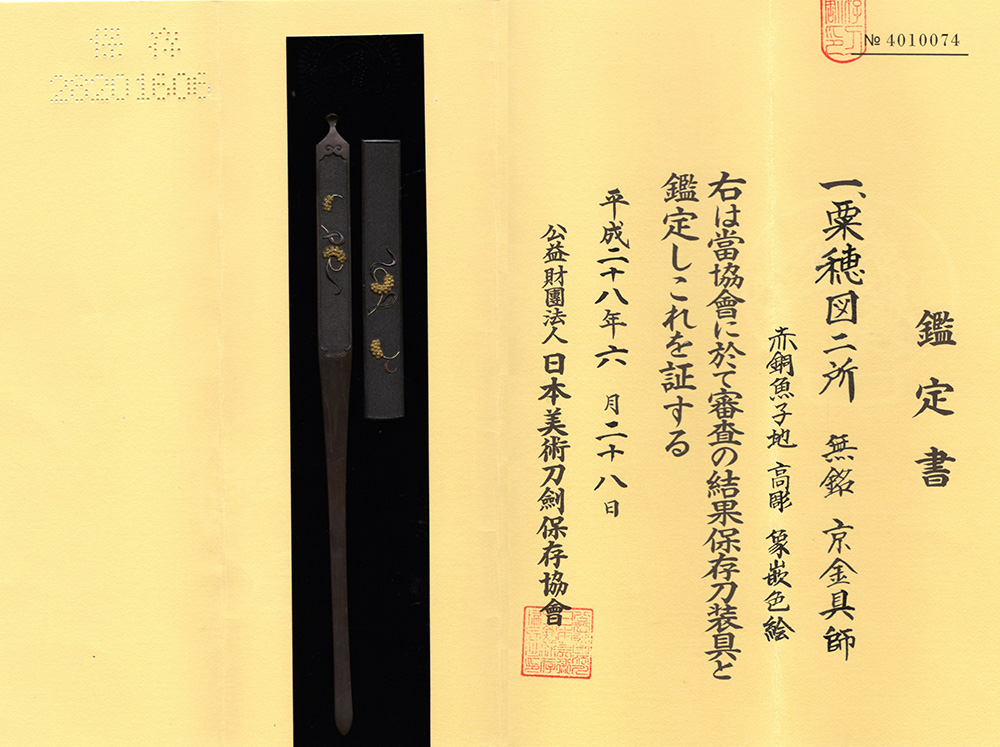 № 4010074
鑑定書
一、粟穂図二所 無銘 京金具師
赤銅魚子地 高彫 象嵌色絵
右は當協會に於て審査の結果保存刀装具と
鑑定しこれを証する
平成二十八年六月二十八日
公益財團法人 日本美術刀劍保存協會
保存
28201606